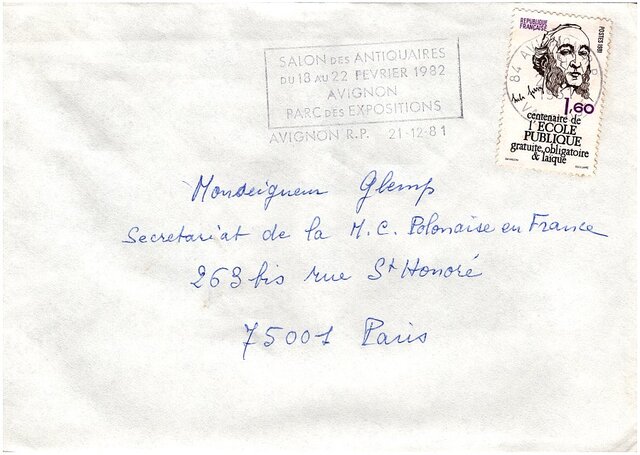 SALON DES ANTIQUAIRES
DU 18 AU 22 FEVRIER 1982
AVIGNON
PARC DES EXPOSITIONS
AVIGNON R.P. 21-12-81
REPUBLIQUE
FRANÇAISE
POSTES 1981
1,60
centenaire de
l'ECOLE
PUBLIQUE
gratuite, obligatoire
& laïque
Monseigneur Glemp
Secretariat de la M.C. Polonaise en France
263 bis rue St Honoré
75001 Paris